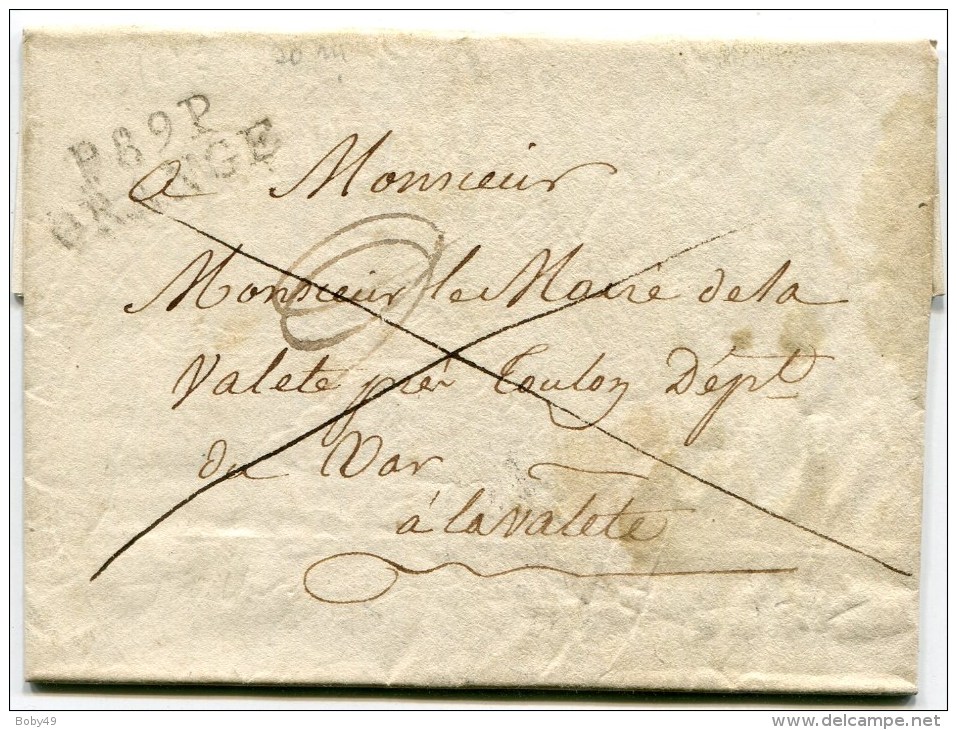 20
P89P
ORANGE
a Monsieur
Monsieur le Maire de la
Valete près Toulon Dépt
du Var
à la valete
Boby49
delcampe.net